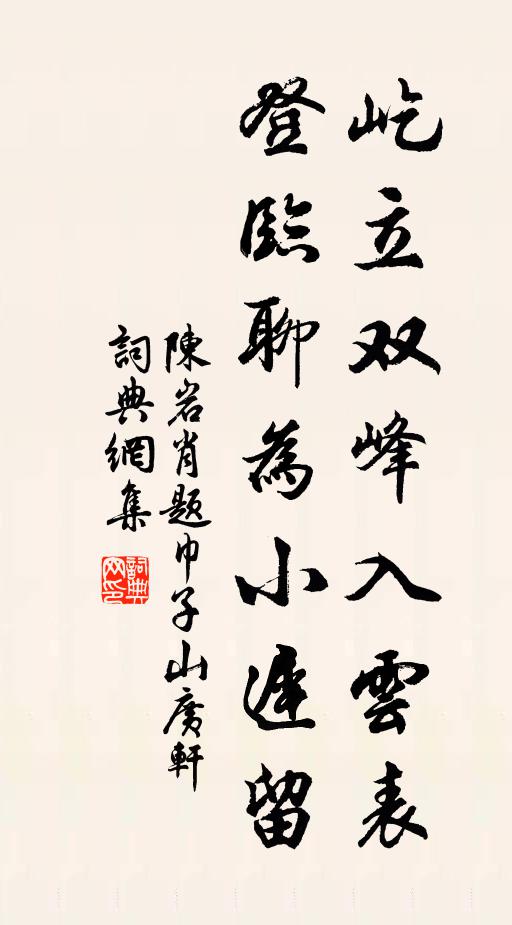 屹立双峰入雲表
登臨聊為小遲留
陳岩肖題巾子山廣軒
詞典網集
詞典网印